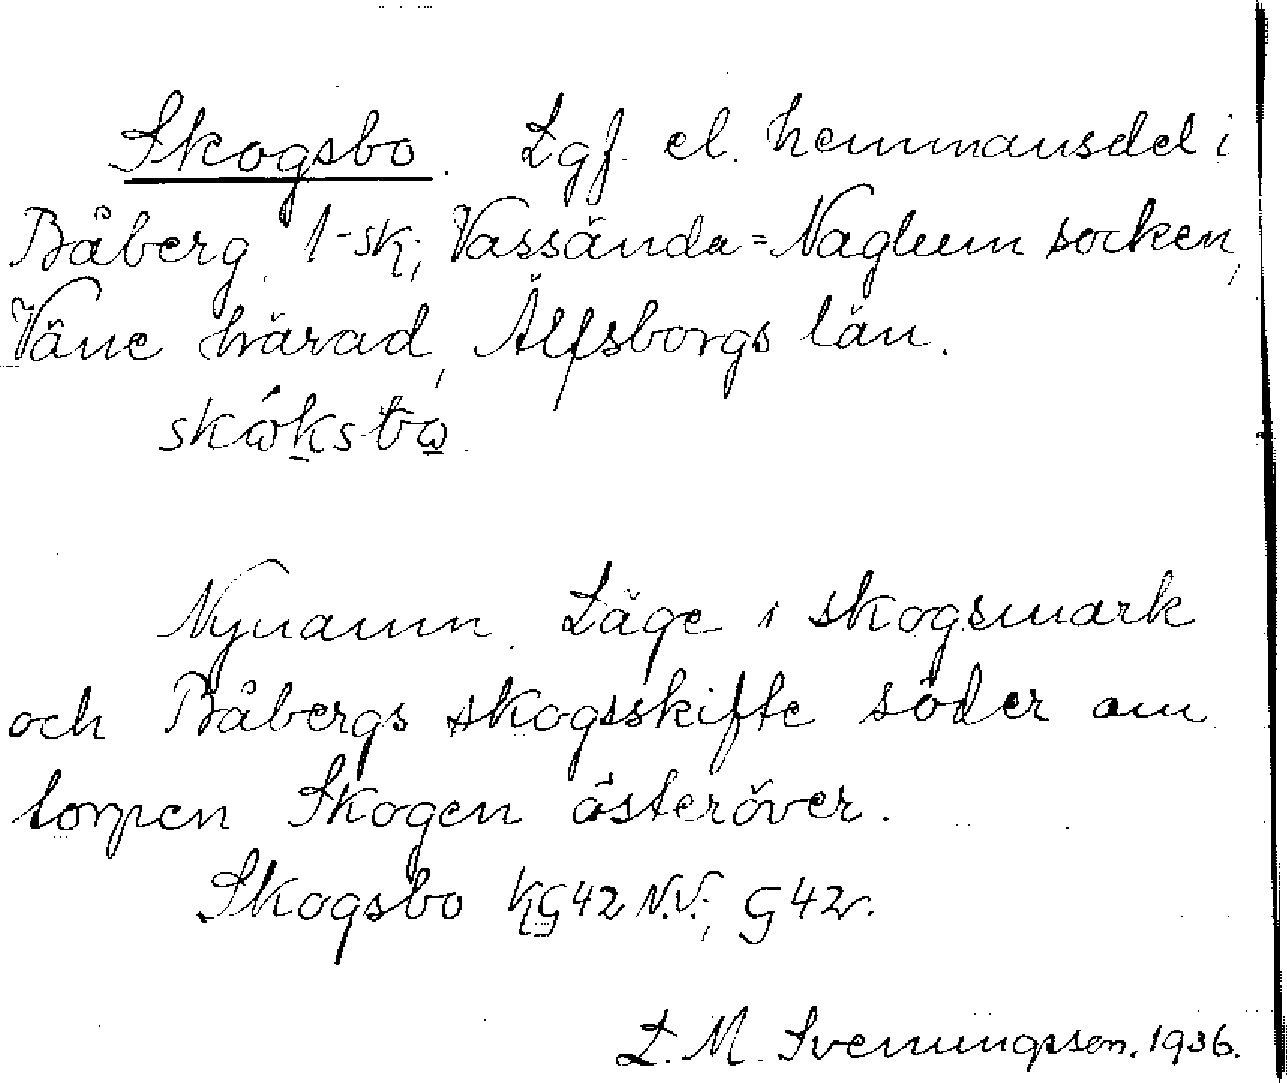 Skogsbo. Lgf. el. hemmansdel i
Båberg 1-sk; Vassända-Naglum socken,
Väne härad, Älfsborgs län.
skóksbo
Nynamn. Läge i skogsmark
och Båbergs skogsskifte söder om
torpen Skogen österöver.
Skogsbo KG42 N.V.; G42v.
L. M. Svenungsson. 1936.